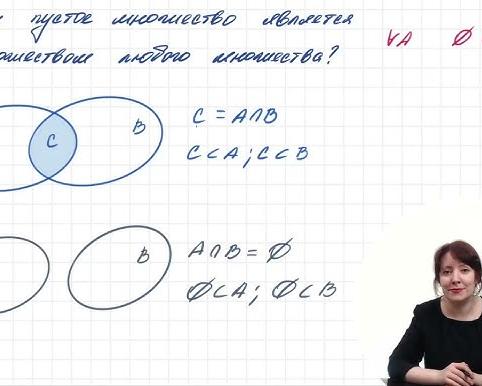 пустое множество является
ножеством любого множества?
∀A ∅
B
C
C = A∩B
C⊂A ; C⊂B
B
A∩B = ∅
∅⊂A ; ∅⊂B